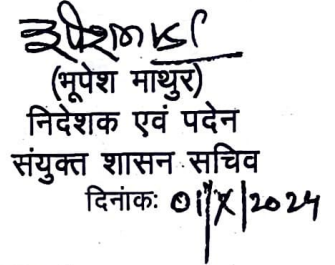 (भूपेश माथुर)
निदेशक एवं पदेन
संयुक्त शासन सचिव
दिनांकः 01/X/2024